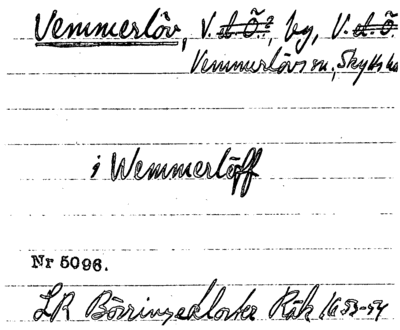 Vemmerlöv, V. a. Ö.?, by, V. o. Ö.
Vemmerlövs sn, Skytts h
i Wemmerlöff
Nr 5096.
LR Börringekloster Räk 1653-54